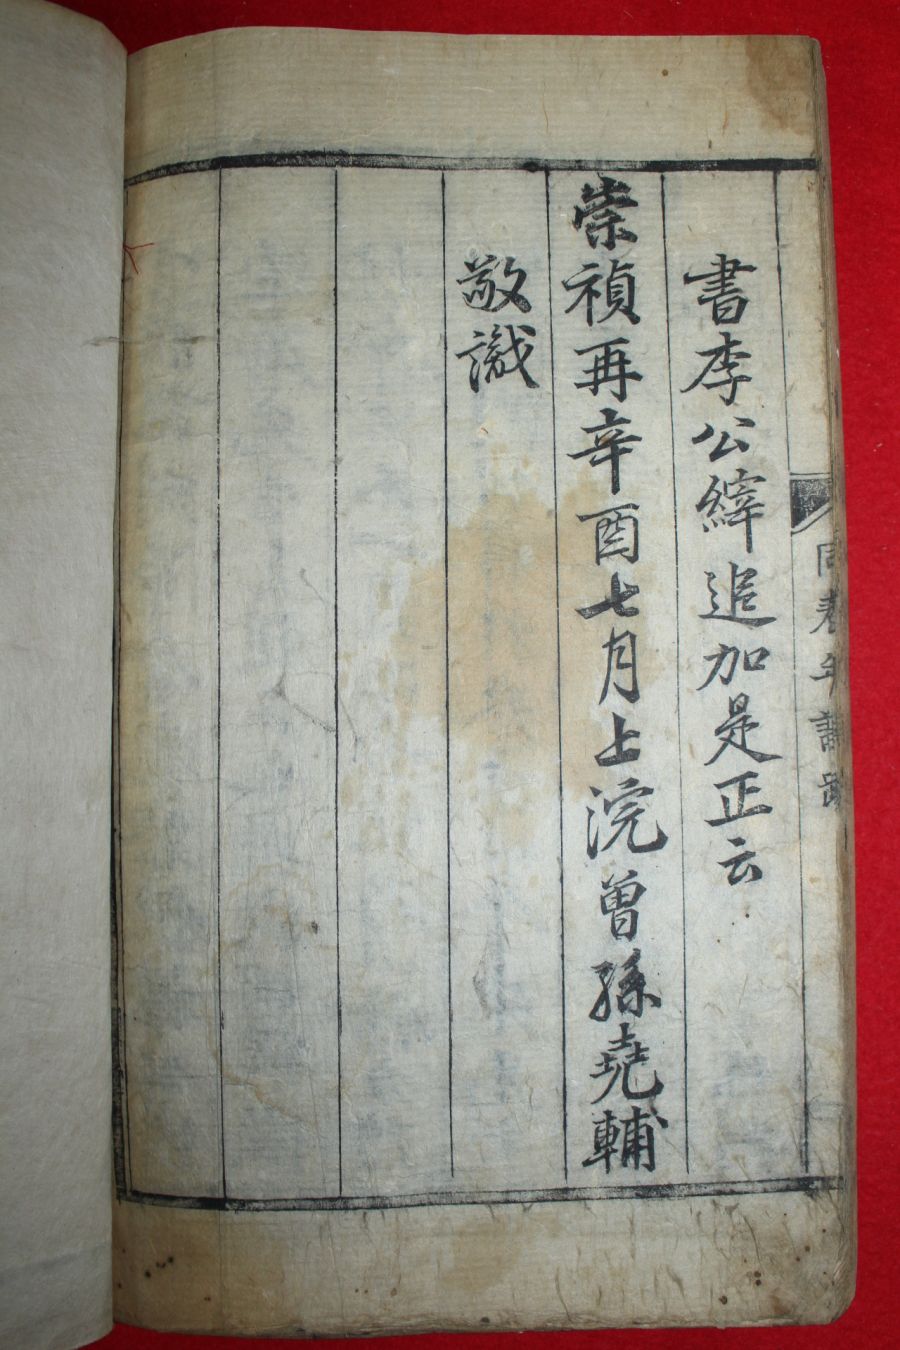 書李公縡追加是正云
崇禎再辛酉七月上浣曾孫堯輔
敬識
同春年譜